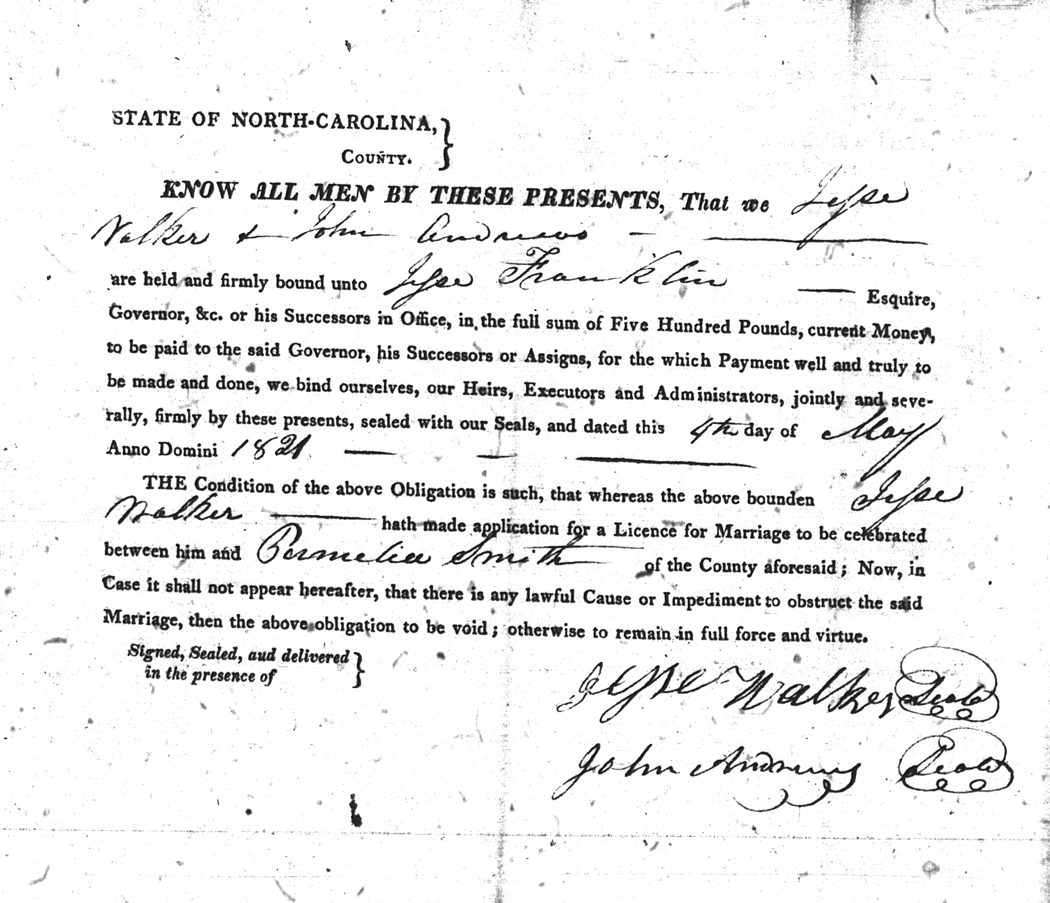 STATE OF NORTH-CAROLINA,
COUNTY.
KNOW ALL MEN BY THESE PRESENTS, That we Jesse
Walker & John Andrews
are held and firmly bound unto Jesse Franklin Esquire,
Governor, &c. or his Successors in Office, in the full sum of Five Hundred Pounds, current Money,
to be paid to the said Governor, his Successors or Assigns, for the which Payment well and truly to
be made and done, we bind ourselves, our Heirs, Executors and Administrators, jointly and seve-
rally, firmly by these presents, sealed with our Seals, and dated this 4th day of May
Anno Domini 1821
THE Condition of the above Obligation is such, that whereas the above bounden Jesse
Walker hath made application for a Licence for Marriage to be celebrated
between him and Permelia Smith of the County aforesaid; Now, in
Case it shall not appear hereafter, that there is any lawful Cause or Impediment to obstruct the said
Marriage, then the above obligation to be void; otherwise to remain in full force and virtue.
Signed, Sealed, aud delivered
in the presence of
Jesse Walker Seal
John Andrews Seal